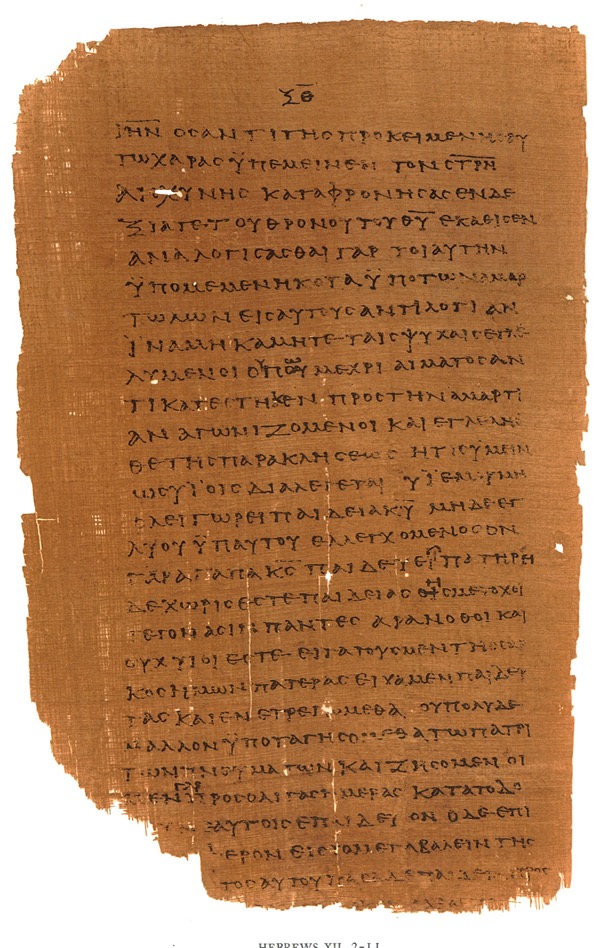 ΞΘ
ΙΗΝ ΟϹ ΑΝΤΙ ΤΗϹ ΠΡΟΚΕΙΜΕΝΗϹ
ΤΩ ΧΑΡΑϹ ΫΠΕΜΕΙΝΕΝ ΤΟΝ ϹΤΡΝ
ΑΙϹΧΥΝΗϹ ΚΑΤΑΦΡΟΝΗϹΑϹ ΕΝ ΔΕ
ΞΙΑ ΤΕ ΤΟΥ ΘΡΟΝΟΥ ΤΟΥ ΘΥ ΕΚΑΘΙϹΕΝ
ΑΝΑΛΟΓΙϹΑϹΘΑΙ ΓΑΡ ΤΟΙΑΥΤΗΝ
ΫΠΟΜΕΜΕΝΗΚΟΤΑ ΫΠΟ ΤΩΝ ΑΜΑΡ
ΤΩΛΩΝ ΕΙϹ ΑΥΤΟΥϹ ΑΝΤΙΛΟΓΙΑΝ
ΪΝΑ ΜΗ ΚΑΜΗΤΕ ΤΑΙϹ ΨΥΧΑΙϹ ΕΓΛΕ
ΛΥΜΕΝΟΙ ΟΥΠΩ ΜΕΧΡΙ ΑΙΜΑΤΟϹ ΑΝ
ΤΙΚΑΤΕϹΤΗΤΕ ΠΡΟϹ ΤΗΝ ΑΜΑΡΤΙ
ΑΝ ΑΓΩΝΙΖΟΜΕΝΟΙ ΚΑΙ ΕΓΛΕΛΗϹ
ΘΕ ΤΗϹ ΠΑΡΑΚΛΗϹΕΩϹ ΗΤΙϹ ΫΜΕΙΝ
ΩϹ ΥΪΟΙϹ ΔΙΑΛΕΓΕΤΑΙ ΥΪΕ ΜΟΥ ΜΗ
ΟΛΕΙΓΩΡΕΙ ΠΑΙΔΕΙΑϹ ΚΥ ΜΗΔΕ ΕΓ
ΛΥΟΥ ΫΠ ΑΥΤΟΥ ΕΛΛΕΓΧΟΜΕΝΟϹ ΟΝ
ΓΑΡ ΑΓΑΠΑ ΚϹ ΠΑΙΔΕΥΕΙ
ΔΕ ΧΩΡΙϹ ΕϹΤΕ ΠΑΙΔΕΙΑϹ ΗϹ ΜΕΤΟΧΟΙ
ΓΕΓΟΝΑϹΙΝ ΠΑΝΤΕϹ ΑΡΑ ΝΟΘΟΙ ΚΑΙ
ΟΥΧ ΥΙΟΙ ΕϹΤΕ ΕΙΤΑ ΤΟΥϹ ΜΕΝ ΤΗϹ
ΚΟϹ ΗΜΩΝ ΠΑΤΕΡΑϹ ΕΙΧΑΜΕΝ ΠΑΙΔΕΥ
ΤΑϹ ΚΑΙ ΕΝΕΤΡΕΠΟΜΕΘΑ ΟΥ ΠΟΛΥ ΔΕ
ΜΑΛΛΟΝ ΫΠΟΤΑΓΗϹΟΜΕΘΑ ΤΩ ΠΑΤΡΙ
ΤΩΝ ΠΝΕΥΜΑΤΩΝ ΚΑΙ ΖΗϹΟΜΕΝ ΟΙ
ΜΕΝ ΓΑΡ ΠΡΟϹ ΟΛΙΓΑϹ ΗΜΕΡΑϹ ΚΑΤΑ ΤΟ ΔΟ
ΑΥΤΟΙϹ ΕΠΑΙΔΕΥΟΝ Ο ΔΕ ΕΠΙ
ΦΕΡΟΝ ΕΙϹ ΤΟ ΜΕΤΑΛΑΒΕΙΝ ΤΗϹ
ΤΟϹ ΑΥΤΟΥ ΠΑϹΑ ΔΕ ΠΑΙΔΕΙΑ ΠΡΟϹ
HEBREWS XII. 2-11